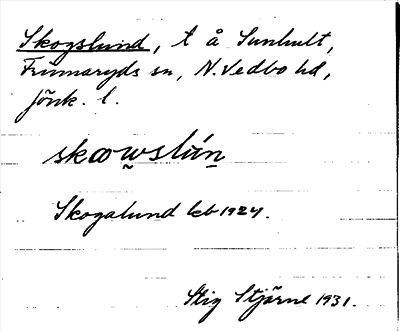 Skogslund, t å Sunhult,
Frinnaryds sn, N. Vedbo hd,
Jönk. l.
skωw̰slún̲
Skogalund kb 1924.
Stig Stjärne 1931.